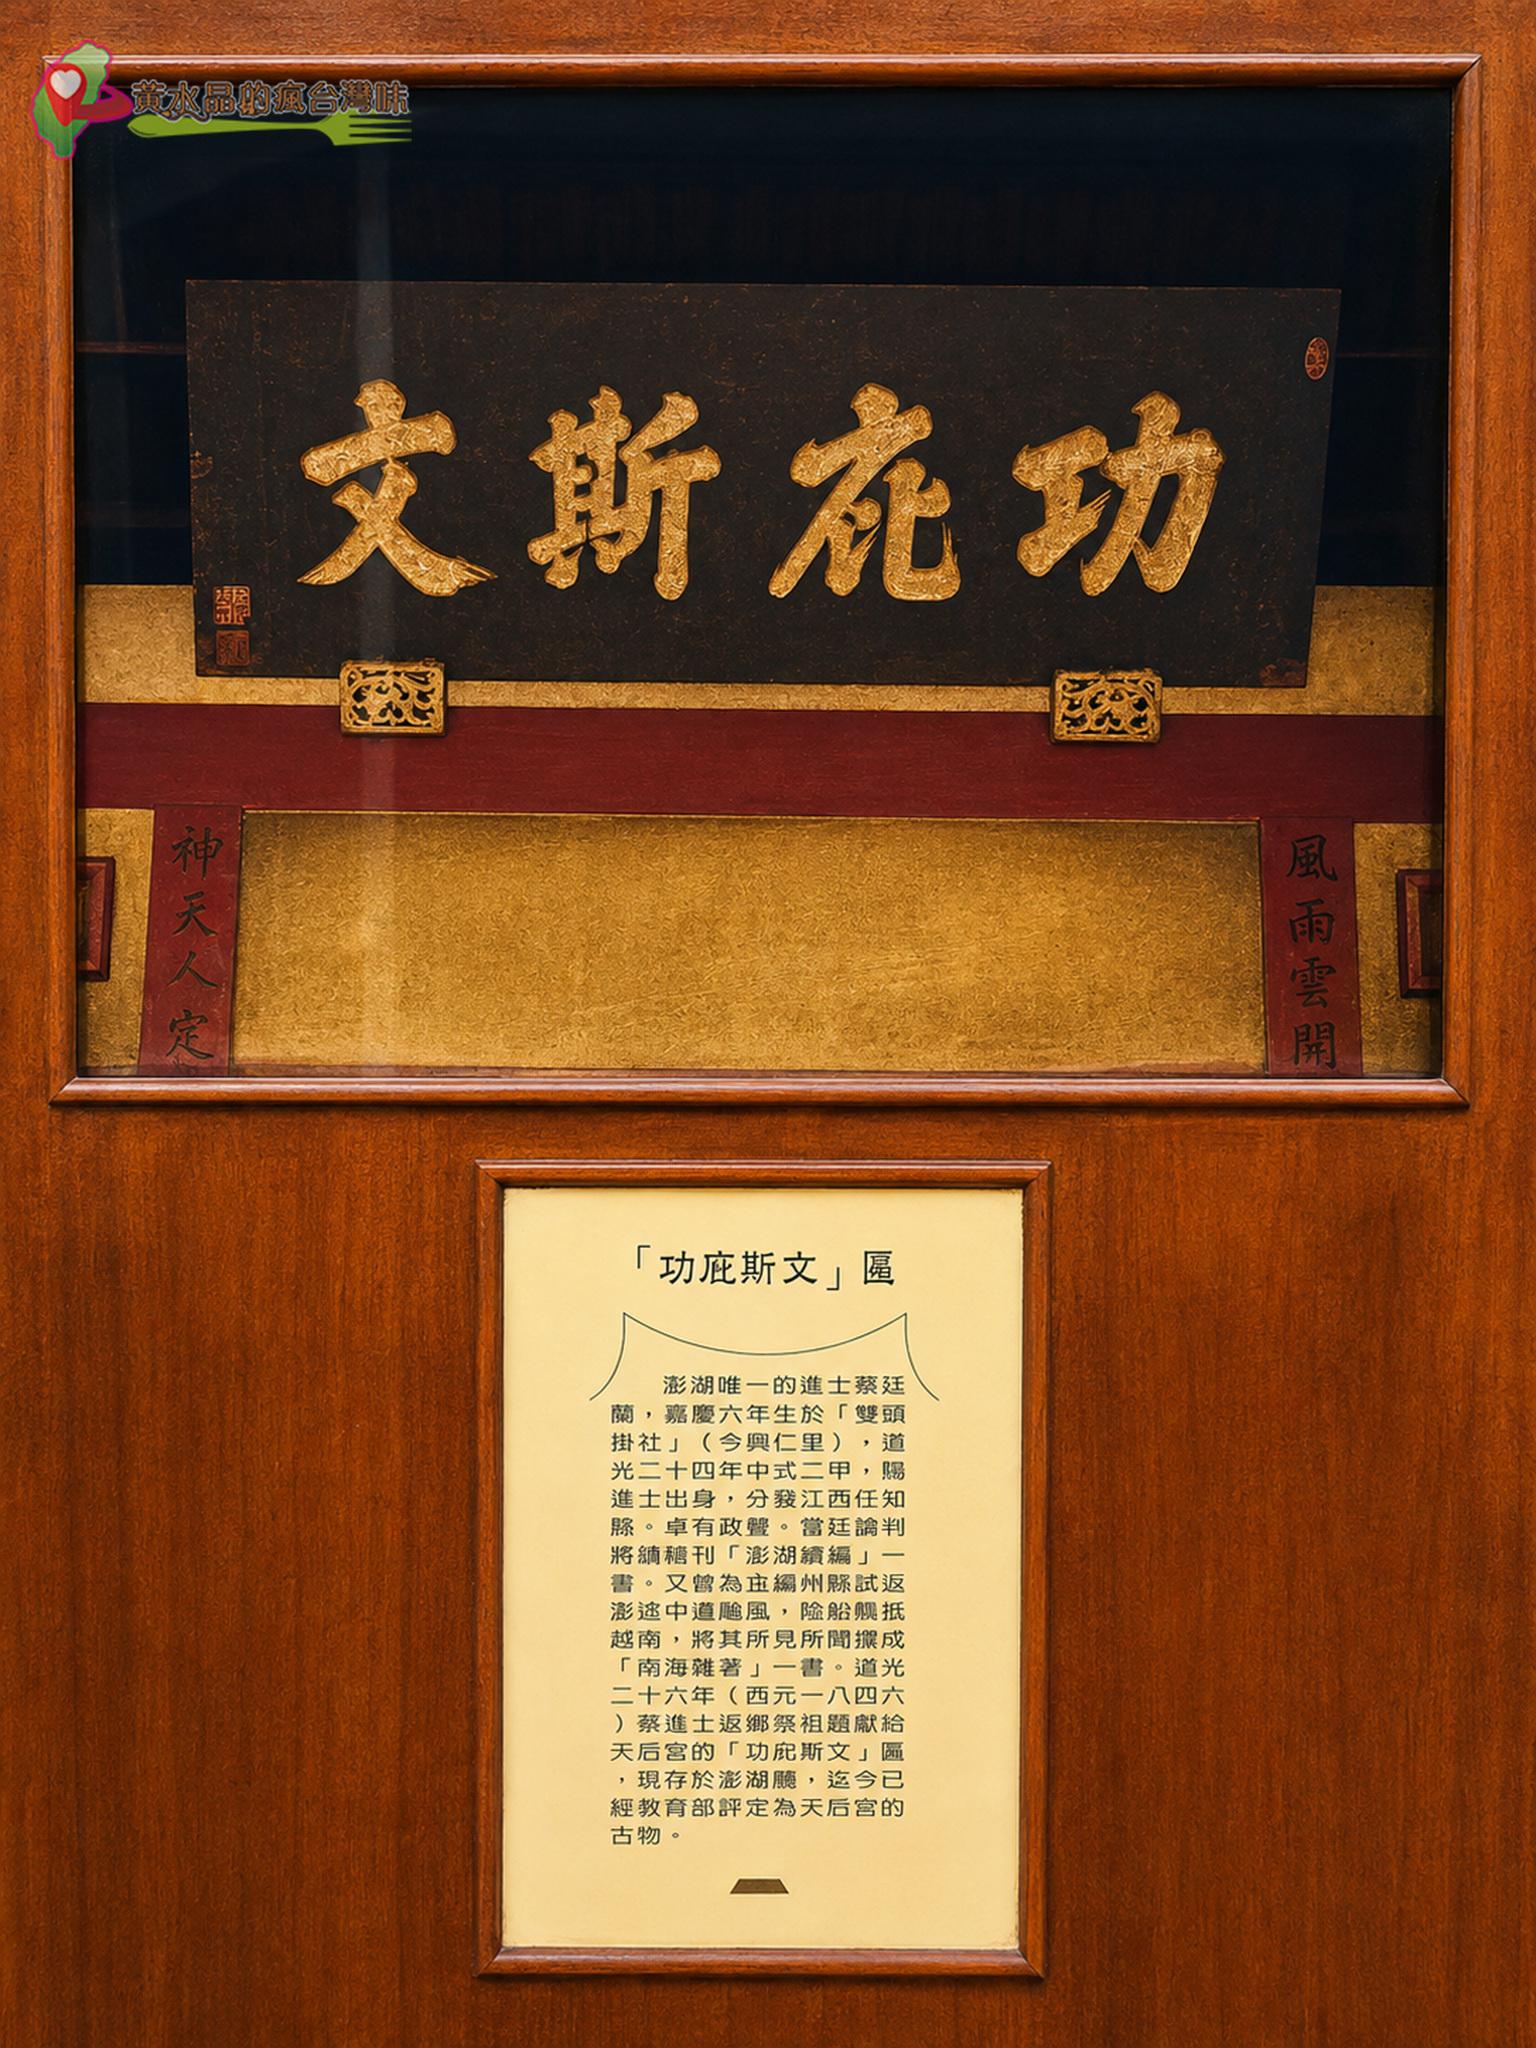 黃水晶的瘋台灣味
功庇斯文
風雨雲開
神天人定
「功庇斯文」匾
澎湖唯一的進士蔡廷
蘭，嘉慶六年生於「雙頭
掛社」（今興仁里），道
光二十四年中式二甲，賜
進士出身，分發江西任知
縣。卓有政聲。當廷論判
將 刊「澎湖續編」一
書。又曾為 州縣試返
澎途中道颱風， 船 抵
越南，將其所見所聞撰成
「南海雜著」一書。道光
二十六年（西元一八四六
）蔡進士返鄉祭祖題獻給
天后宮的「功庇斯文」匾
，現存於澎湖廳，迄今已
經教育部評定為天后宮的
古物。